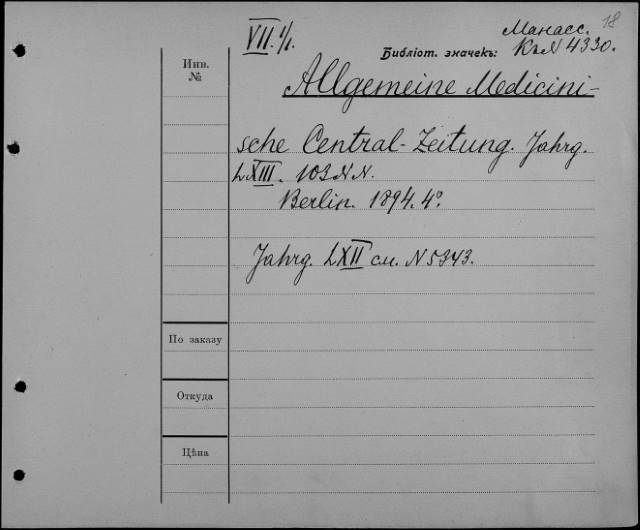 18
VII. 1/1.
Манасс.
Библіот. значекъ: Къ N 4330.
Инв.
№
Allgemeine Medicini-
sche Central-Zeitung. Jahrg.
LXIII. 103 N N.
Berlin. 1894. 4°.
Jahrg. LXII см. N 5343.
По заказу
Откуда
Цѣна